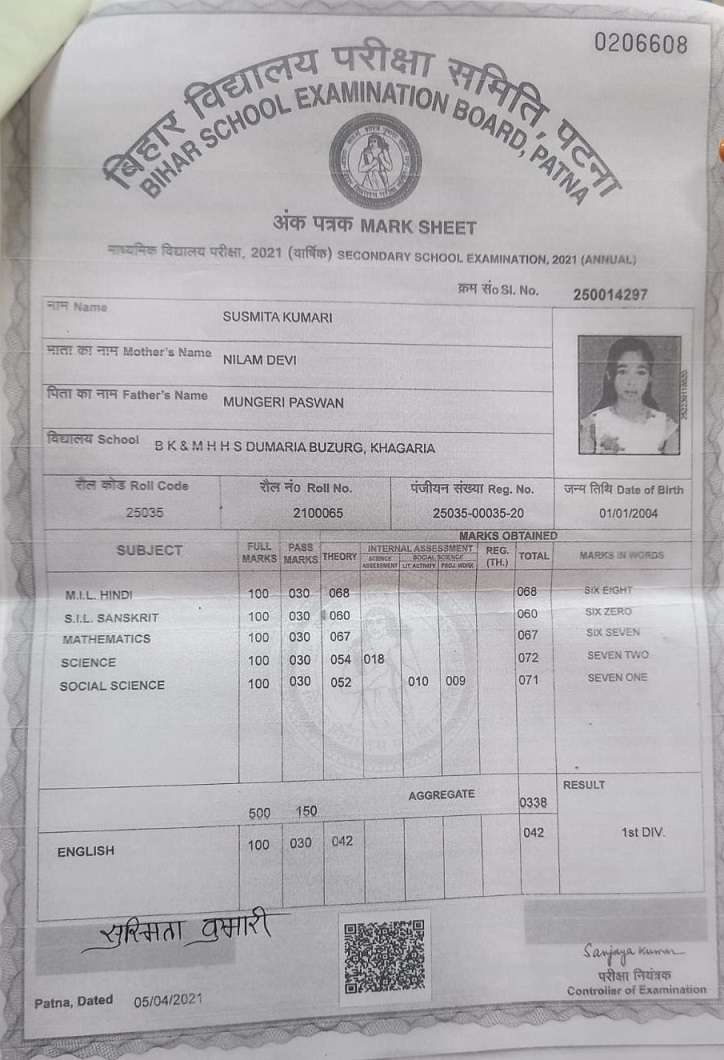 0206608
बिहार विद्यालय परीक्षा समिति, पटना
BIHAR SCHOOL EXAMINATION BOARD, PATNA
अंक पत्रक MARK SHEET
माध्यमिक विद्यालय परीक्षा, 2021 (वार्षिक) SECONDARY SCHOOL EXAMINATION, 2021 (ANNUAL)
क्रम सं० Sl. No. 250014297
नाम Name SUSMITA KUMARI
माता का नाम Mother's Name NILAM DEVI
पिता का नाम Father's Name MUNGERI PASWAN
विद्यालय School B K & M H H S DUMARIA BUZURG, KHAGARIA
रौल कोड Roll Code रौल नं० Roll No. पंजीयन संख्या Reg. No. जन्म तिथि Date of Birth
25035 2100065 25035-00035-20 01/01/2004
MARKS OBTAINED
SUBJECT FULL MARKS PASS MARKS THEORY INTERNAL ASSESSMENT REG. (TH.) TOTAL MARKS IN WORDS
SCIENCE ASSESSMENT SOCIAL SCIENCE LIT.ACTIVITY PROJ.WORK
M.I.L. HINDI 100 030 068 068 SIX EIGHT
S.I.L. SANSKRIT 100 030 060 060 SIX ZERO
MATHEMATICS 100 030 067 067 SIX SEVEN
SCIENCE 100 030 054 018 072 SEVEN TWO
SOCIAL SCIENCE 100 030 052 010 009 071 SEVEN ONE
500 150 AGGREGATE 0338 RESULT
ENGLISH 100 030 042 042 1st DIV.
सुस्मिता कुमारी
Sanjaya Kumar
परीक्षा नियंत्रक
Controller of Examination
Patna, Dated 05/04/2021